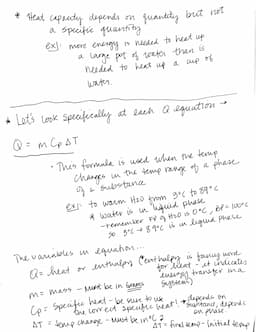 * Heat capacity depends on quantity but not
a specific quantity
ex): more energy is needed to heat up
a large pot of water than is
needed to heat up a cup of
water.
* Let's look specifically at each Q equation →
Q = m Cp ΔT
• This formula is used when the temp
changes in the temp range of a phase
of a substance
ex: to warm H2O from 9°C to 89°C
* water is in liquid phase
- remember FP of H2O is 0°C, BP = 100°C
so 9°C → 89°C is in liquid phase
The variables in equation...
Q = heat or enthalpy (enthalpy is fancy word
for heat - it indicates
energy transfer in a
system)
m = mass - Must be in grams
Cp = specific heat - be sure to use
the correct specific heat!
* depends on
substance, depends
on phase
ΔT = temp change - Must be in °C
ΔT = final temp - initial temp